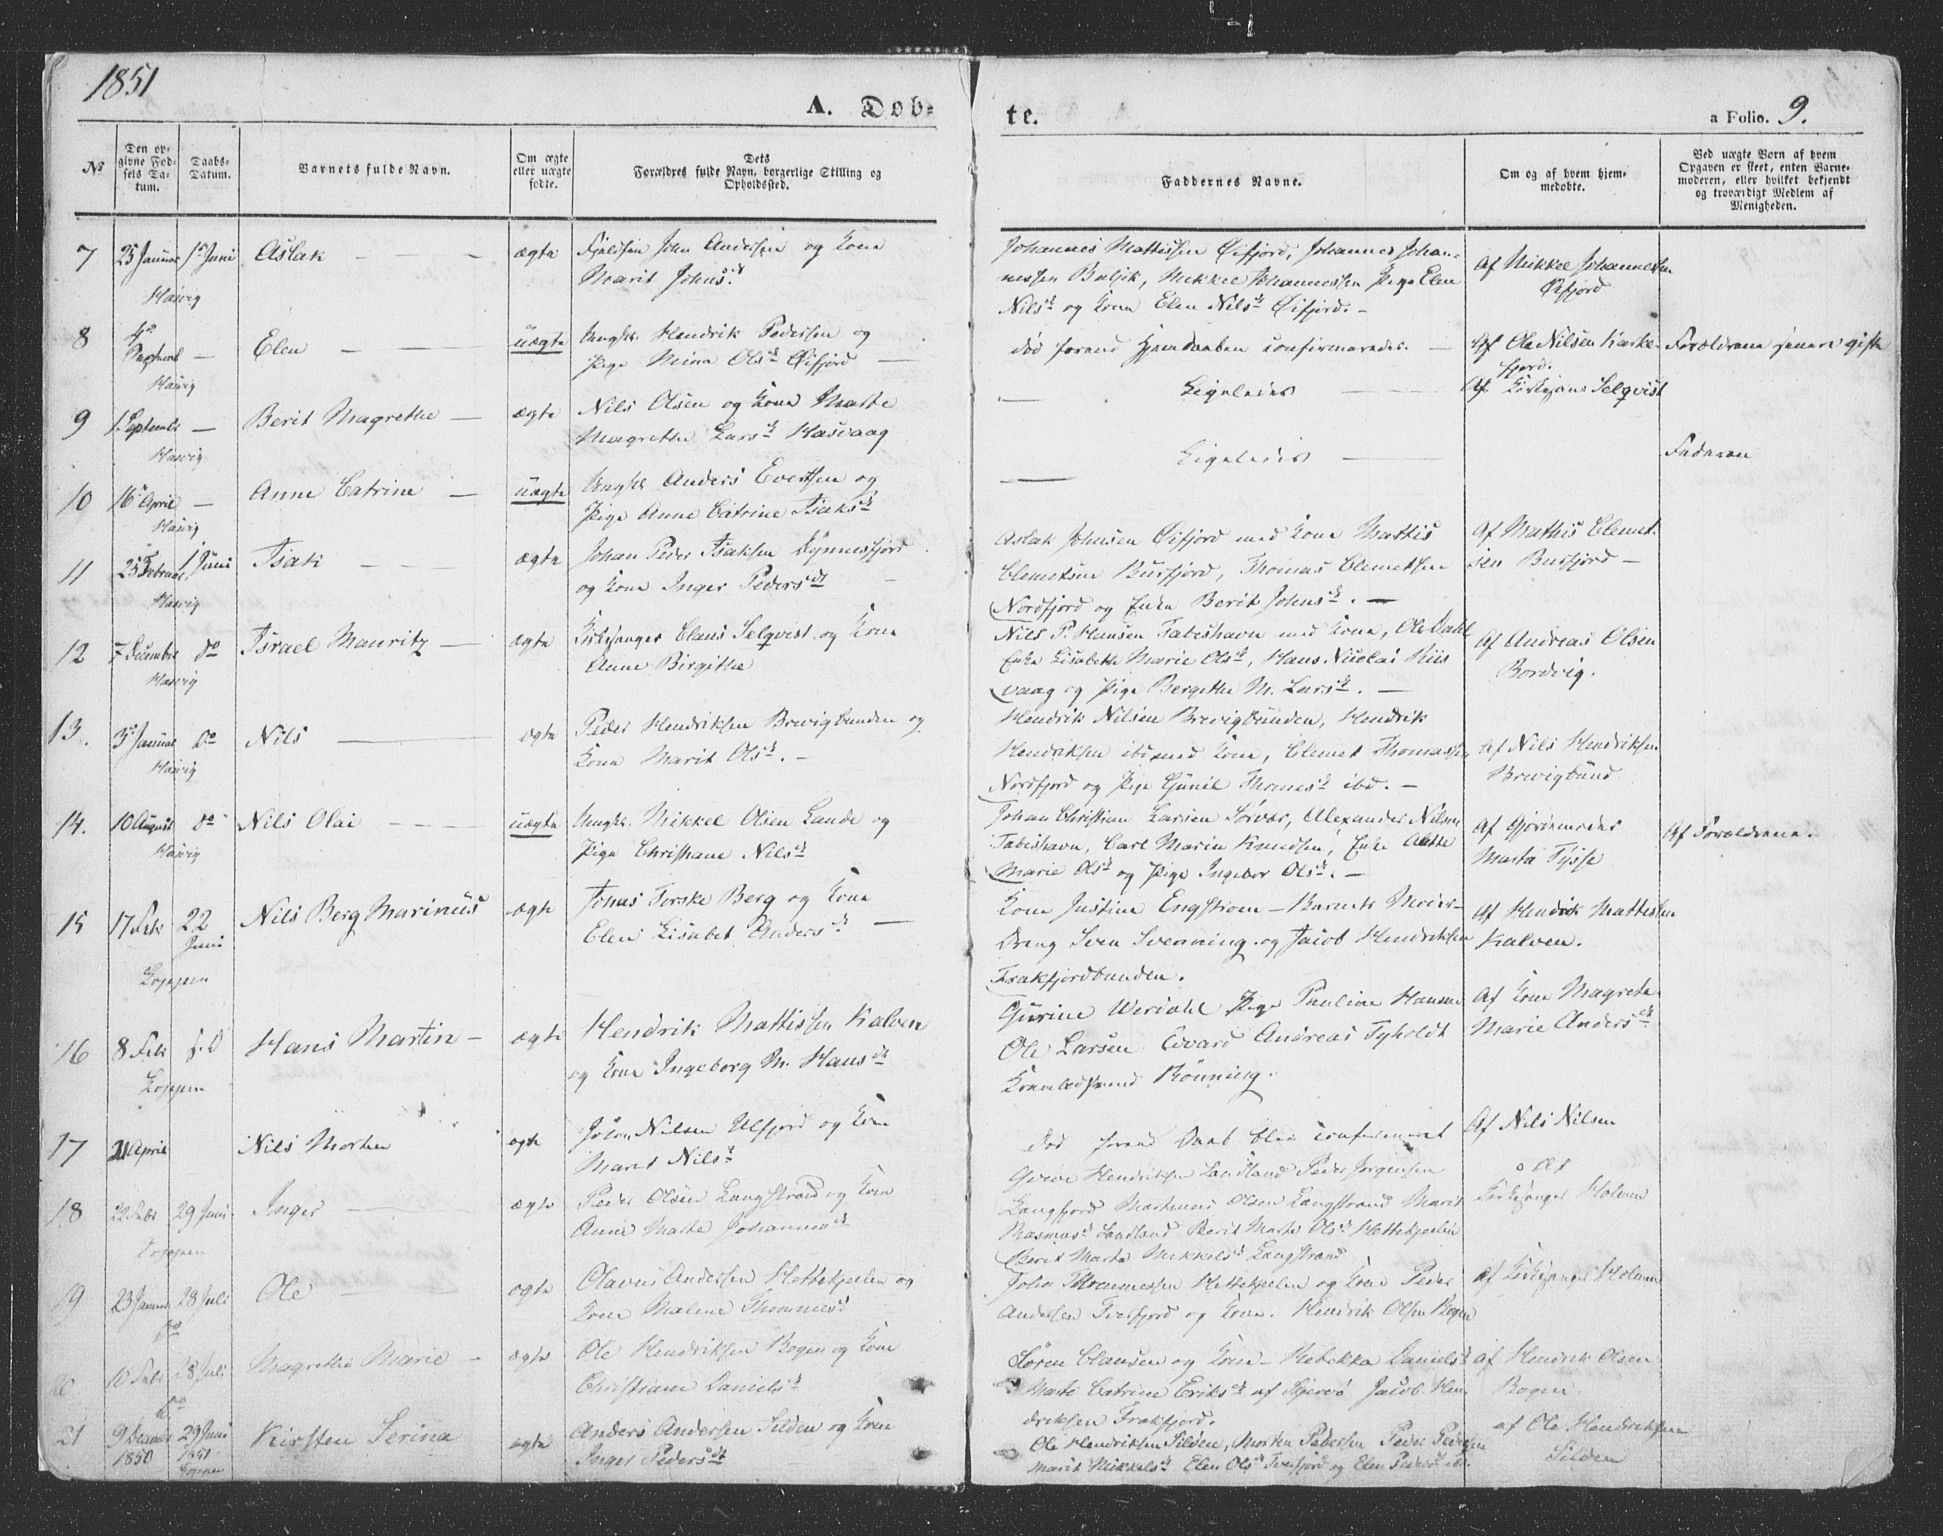 1851
A. Døb-
te.
a Folio. 9.
№
Den op-
givne Fød-
sels Da-
tum.
Daabs-
Datum.
Barnets fulde Navn.
Om ægte
eller uægte
fødte.
Dets
Forældres fulde Navn, borgerlige Stilling og
Opholdssted.
Faddernes Navne.
Om og af hvem hjem-
medøbte.
Ved uægte Børn af hvem
Opgaven er skeet, enten Barne-
moderen, eller hvilket bekjendt
og troværdigt Medlem af
Menigheden.
7 25 Januar 1e Juni Aslak ægte Fjeldfin John Andersen og Kone
Hasvig Maarit Johnsd.
Johannes Mattissen Øifjord, Johannes Johan-
nessen Mikkel Johannessen Pige Elen
Nilsd og Kone Elen Nilsd Øifjord. -
Af Mikkel Johannessen
Øifjord
8 4de Septemb — Elen — uægte Ungk. Hendrik Pedersen og
Hasvig Pige Nina Olsd Øifjord
død forend Hjemdaaben confirmeredes. —
Af Ole Nilsen Karke-
fjord.
Forældrene senere gifte
9 1 Septemb — Berit Magrethe — ægte Nils Olsen og Kone Marthe
Hasvig Magrethe Larsd Hasvaag
— Ligeledes —
Af Kirkesanger Selqvist
10 16 April — Anne Catrine — uægte Ungk. Anders Evertsen og
Hasvig Pige Anne Catrine Isaksd
— Ligeledes —
Faderen
11 25 Februar 1 Juni Isak — ægte Johan Peder Isaksen Dønnesfjord
Hasvig og Kone Inger Pedersdt
Aslak Johnsen Øifjord med Kone Mattis
Clemetsen Bursfjord, Thomas Clemetsen
Nordfjord og Enke Berit Johnsd. —
Af Mathis Clemet-
sen Bursfjord —
12 7 December do Israel Mauritz — ægte Kirkesanger Claus Selqvist og Kone
Hasvig Anne Birgithe
Nils P. Hansen Fabeshavn med Kone, Ole Dahl
Enke Lisabeth Marie Olsd, Hans Nicolai Riis
vaag og Pige Bergethe M. Larsd. —
Af Andreas Olsen
Bordvig.
13. 3 Januar do Nils — ægte Peder Hendriksen Brevigbunden og
Hasvig Kone Marit Olsd. —
Hendrik Nilsen Brevigbunden, Hendrik
Hendriksen ibd med Kone, Clemet Thomassen
Nordfjord og Pige Gunil Thomasd ibd. —
Af Nils Hendriksen
Brevigbund
14. 10 August do Nils Olai — uægte Ungk. Mikkel Olsen Lande og
Hasvig Pige Christiane Nilsd
Johan Christian Larsen Sørvær, Alexander Nilsen
Fabeshavn, Carl Marin Knudsen, Enke Alette
Marie Olsd og Pige Ingebor Olsd. —
Af Gjordemoder
Marta Tysse
Af Forældrene.
15 17 Feb 22 Juni Nils Berg Marinus ægte Jonas Forske Berg og Kone
Loppen Elen Lisabet Andersdt —
Kone Justine Engstrom — Barnets Moder —
Dreng Sven Svenning og Jacob Hendriksen
Frakfjordbunden.
Af Hendrik Mattissen
Kalven.
16 8 Feb d.o Hans Martin — ægte Hendrik Mattissen Kalven
Loppen og Kone Ingeborg M. Hansdt
Gurine Werdahl Pige Pauline Hansen
Ole Larsen Edvard Andreas Tyholdt
Rönning.
Af Kone Magrete
Marie Andersd
17 21 April Nils Morten ægte Nilsen Ulfjord og Kone
Marit Nilsd
død forend Daab blev confirmeret
Af Nils Nilsen
18 22 Feb 29 Juni Inger — ægte Peder Olsen Langstrand og Kone
Loppen Anne Marte Johannesd
Hendriksen Sandland Peder Jørgensen
Langfjord Martinus Olsen Langstrand Marit
Rasmusd Sandland Berit Marte Olsd Hettekjeilen
Berit Marta Mikkelsd Langstrand
Kirkesanger Holum
19 23 Januar 28 Juli Ole — ægte Olavus Andersen Hettekjeilen og
do Kone Malene Thommesd
John Thommessen Hettekjeilen og Kone Peder
Andersen Tverfjord og Kone. Hendrik Olsen Bogen
af Kirkesanger Holum
20 10 Feb 28 Juli Magrethe Marie — ægte Ole Hendriksen Bogen og Kone
do Christiane Danielsd
Søren Clausen og Kone — Rebekka Danielsd
Marte Catrine Eriksd af Skjervø Jacob Hen-
driksen Frakfjord.
af Hendrik Olsen
Bogen.
21 9 Decemb 1850 29 Juni 1851 Loppen Kirsten Serina ægte Anders Andersen Silden og Kone
Inger Pedersdt
Ole Hendriksen Silden, Morten Pedersen Peder Pedersen
Marit Mikkelsd Elen Olsd Tverfjord og Elen Pedersd ibd.
af Ole Hendriksen
Silden